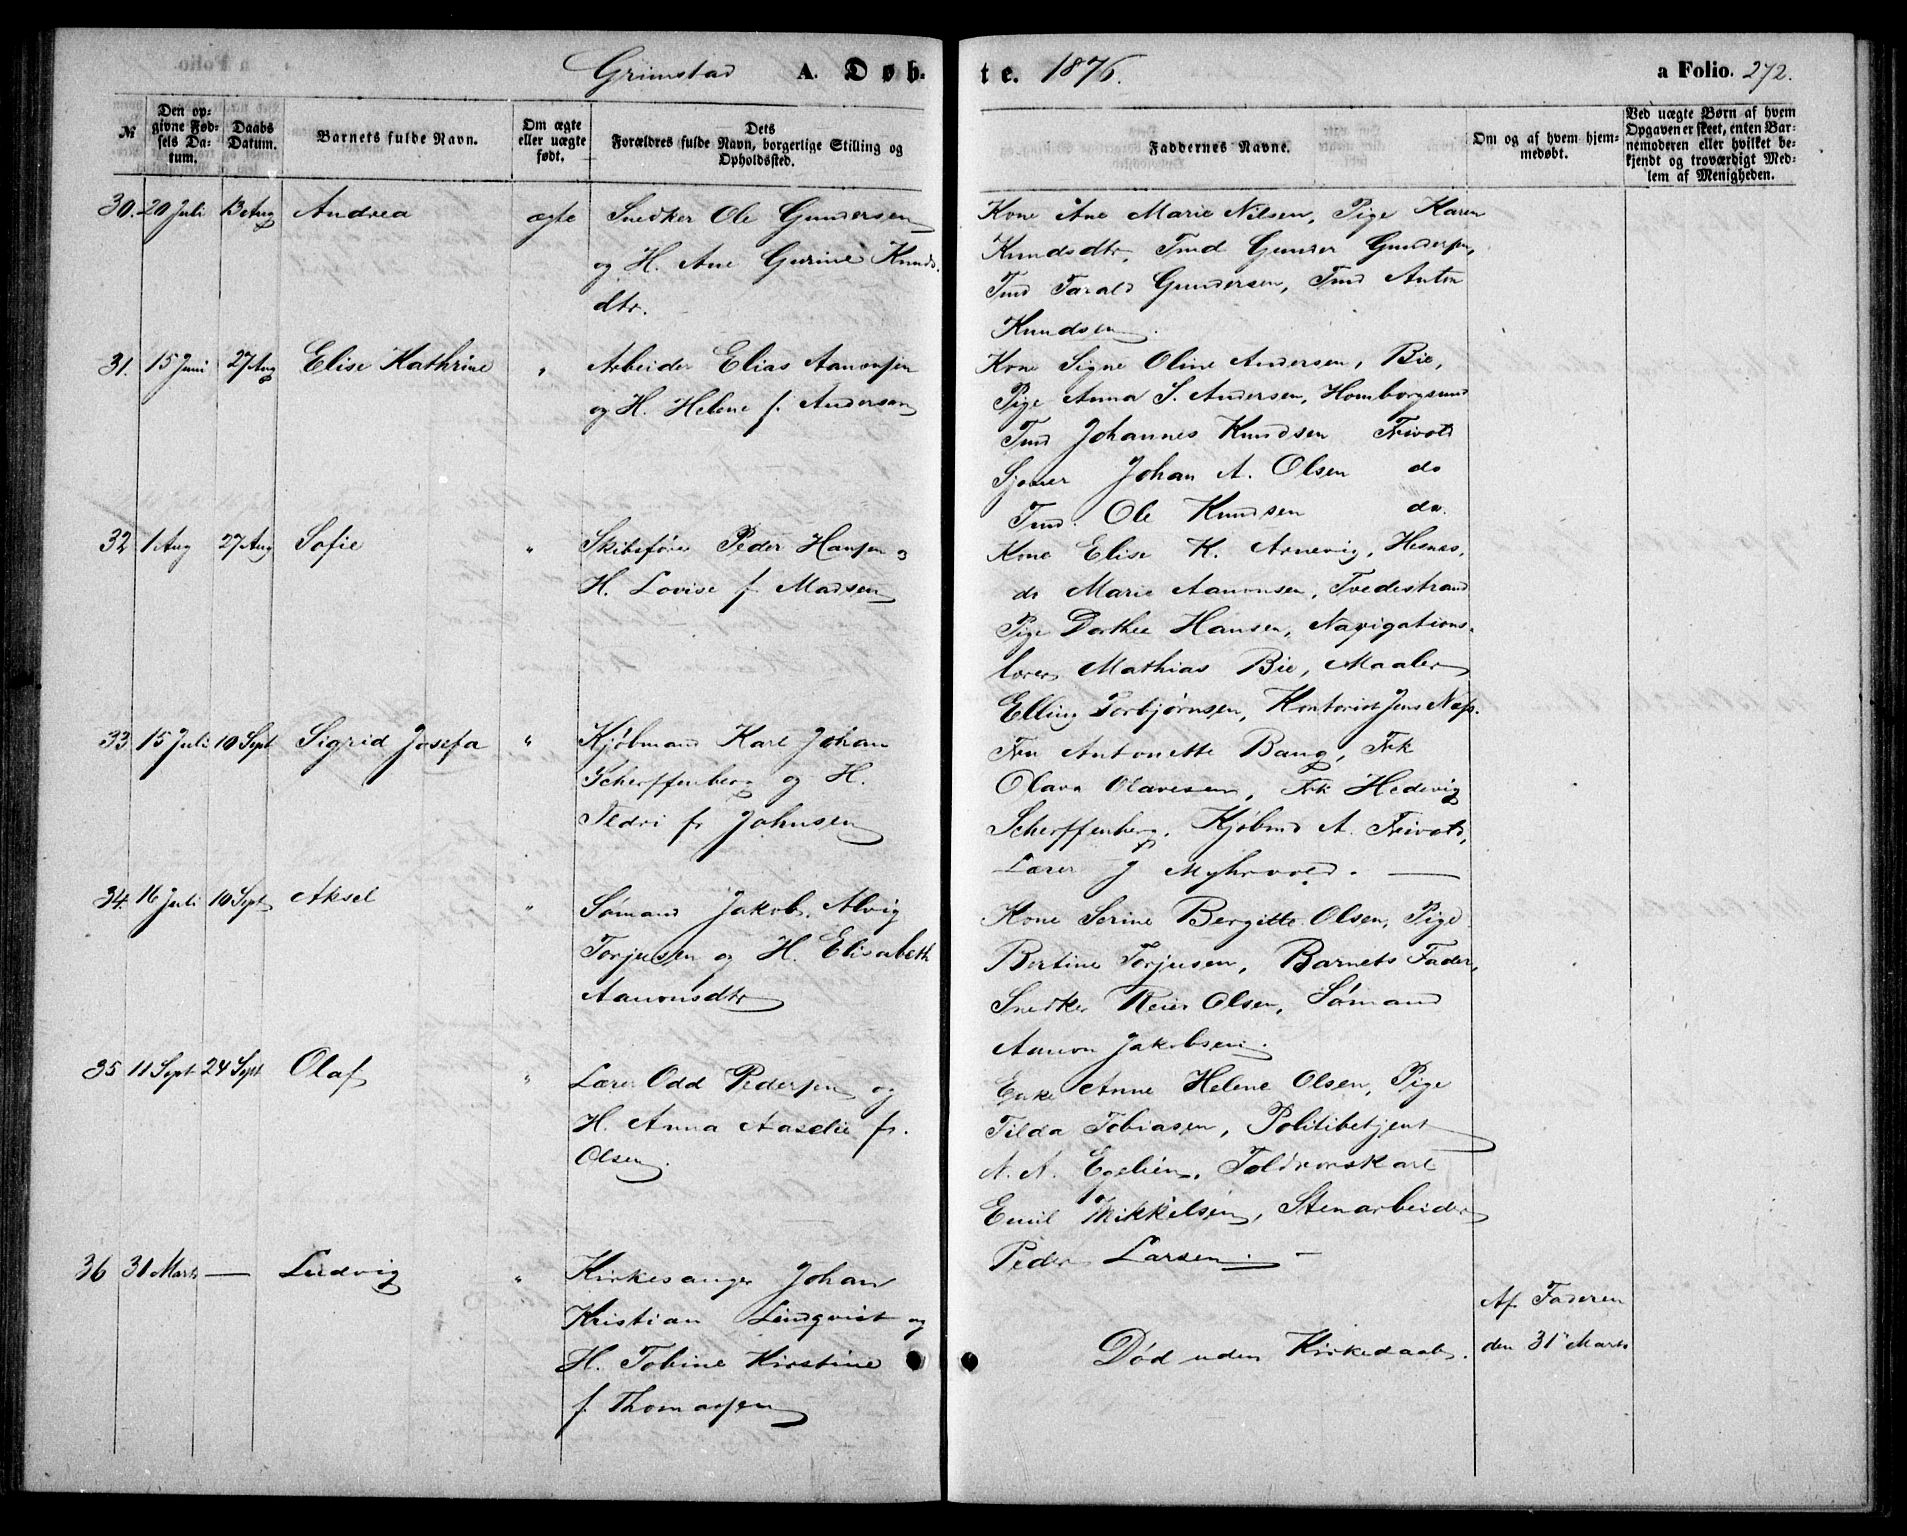 Grimstad A. Døbte. 1876. a Folio. 272.
№
Den opgivne Fødsels Datum.
Daabs Datum.
Barnets fulde Navn.
Om ægte eller uægte født.
Dets Forældres fulde Navn, borgerlige Stilling og Opholdssted.
Faddernes Navne.
Om og af hvem hjemmedøbt.
Ved uægte Børn af hvem Opgaven er skeet, enten Barnemoderen eller hvilket bekjendt og troværdigt Medlem af Menigheden.
30. 20 Juli 13 Aug Andrea ægte Snedker Ole Gundersen
og H. Ane Gurine Knuds
dtr.
Kone Ane Marie Nilsen, Pige Karen
Knudsdtr, Tmd Gunder Gundersen,
Tmd Tarald Gundersen, Tmd Anton
Knudsen.
31. 15 Juni 27 Aug Elise Kathrine " Arbeider Elias Aanonsen
og H. Helene f. Andersen
Kone Signe Oline Andersen, Bie,
Pige Anna S. Andersen, Homborgsund
Tmd Johannes Knudsen Frivold
Sjømer Johan A. Olsen do
Tmd. Ole Knudsen do.
32 1 Aug 27 Aug Sofie " Skibsfører Peder Hansen o
H. Lovise f. Madsen
Kone Elise K. Arnevig, Hesnes,
do Marie Aanonsen, Tvedestrand
Pige Dorthee Hansen, Navigations-
lærer Mathias Bie, Maaler
Elling Torbjørnsen, Kontorist Jens Næss.
33 15 Juli 10 Sept Sigrid Josefa " Kjøbmand Karl Johan
Scherffenberg og H.
Sldri f. Johnsen
Fru Antonette Bang, Frk
Olava Olavesen, Frk Hedevig
Scherffenberg, Kjøbmd A. Frivold,
Lærer J Myhrvold. —
34. 16 Juli 10 Sept Aksel " Sømand Jakob Alvig
Torjusen og H. Elisabeth
Aanonsdtr
Kone Serine Bergitte Olsen, Pige
Bertine Torjusen, Barnets Fader,
Snedker Reier Olsen, Sømand
Aanon Jakobsen.
35 11 Sept 24 Sept Olaf " Lærer Odd Pedersen og
H. Anna Aaselie f.
Olsen.
Enke Anne Helene Olsen, Pige
Tilda Tobiasen, Politibetjent
N. A. Egelien, Toldrorskarl
Emil Mikkelsen, Stenarbeider
Peder Larsen. —
36 31 Marts — Ludvig " Kirkesanger Johan
Kristian Lindqvist og
H. Tobine Kirstine
f. Thomassen
Død uden Kirkedaab.
Af Faderen
den 31 Marts